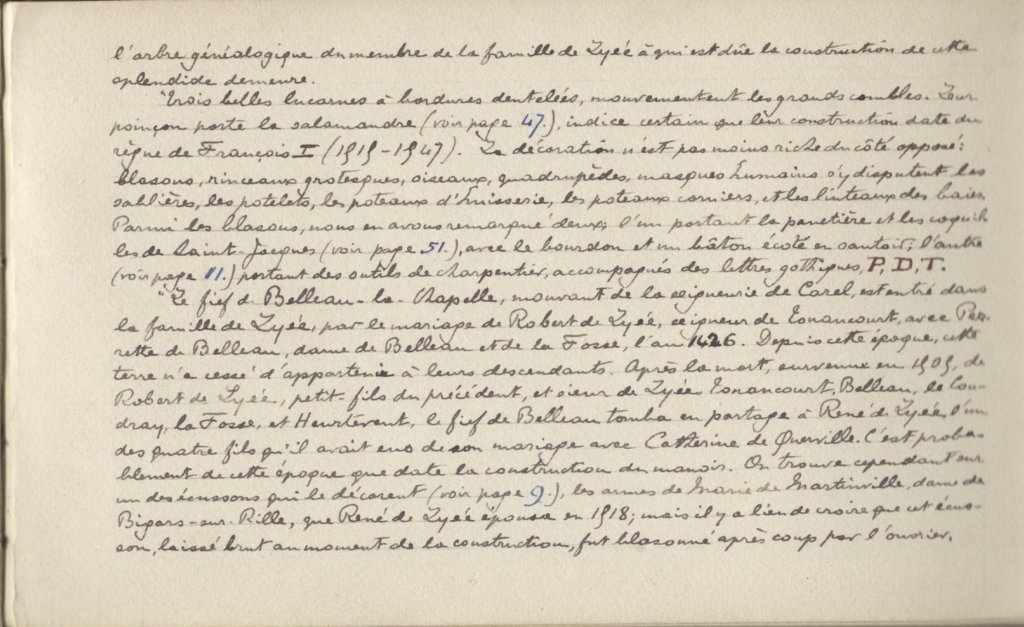 l'arbre généalogique du membre de la famille de Lyée à qui est dûe la construction de cette
splendide demeure.
"Trois belles lucarnes à bordures dentelées, mouvementent les grands combles. Leur
poinçon porte la salamandre (voir page 47.), indice certain que leur construction date du
règne de François I (1515-1547). La décoration n'est pas moins riche du côté opposé:
blasons, rinceaux grotesques, oiseaux, quadrupèdes, masques humains s'y disputent les
sablières, les potelets, les poteaux d'huisserie, les poteaux corniers, et les linteaux des baies.
Parmi les blasons, nous en avons remarqué deux; l'un portant la panetière et les coquil-
les de Saint-Jacques (voir page 51.), avec le bourdon et un bâton écoté en sautoir; l'autre
(voir page 11.) portant des outils de charpentier, accompagnés des lettres gothiques, P, D, T.
"Le fief de Belleau-la-Chapelle, mouvant de la seigneurie de Carel, est entré dans
la famille de Lyée, par le mariage de Robert de Lyée, seigneur de Tonancourt, avec Per-
rette de Belleau, dame de Belleau et de la Fosse, l'an 1426. Depuis cette époque, cette
terre n'a cessé d'appartenir à leurs descendants. Après la mort, survenue en 1505, de
Robert de Lyée, petit-fils du précédent, et sieur de Lyée, Tonancourt, Belleau, le Cou-
dray, la Fosse, et Heurtevent, le fief de Belleau tomba en partage à René de Lyée, l'un
des quatre fils qu'il avait eus de son mariage avec Catherine de Querville. C'est proba-
blement de cette époque que date la construction du manoir. On trouve cependant sur
un des écussons qui le décorent (voir page 9.), les armes de Marie de Martinville, dame de
Bigars-sur-Rille, que René de Lyée épousa en 1518; mais il y a lieu de croire que cet écus-
son, laissé brut au moment de la construction, fut blasonné après coup par l'ouvrier.